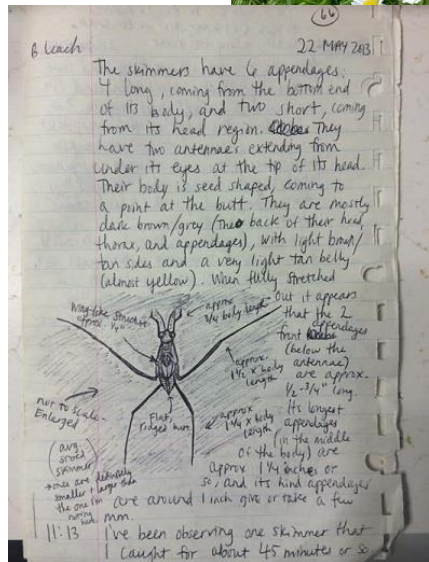 66
B Leach 22 MAY 2013
The skimmers have 6 appendages:
4 long, coming from the bottom end
of its body, and two short, coming
from its head region. They
have two antennaes extending from
under its eyes at the tip of its head.
Their body is seed shaped, coming to
a point at the butt. They are mostly
dark brown/grey (the back of their head,
thorax, and appendages), with light brown/
tan sides and a very light tan belly
(almost yellow). When fully stretched
out it appears
that the 2
front appendages
(below the
antennae)
are approx.
1/2-3/4" long.
Its longest
appendages
(in the middle
of the body) are
approx 1 1/4 inches or
so, and its hind appendages
are around 1 inch give or take a few
mm.
wing-like structure
approx. 1/4"
approx
3/4 body length
approx.
1 1/2 x body
length
approx
1 1/4 x body
length
Flat,
ridged
not to scale-
Enlarged
(avg.
sized
skimmer
*ones are definitely
smaller + larger than
the one I'm
noting here.)
11:13 I've been observing one skimmer that
I caught for about 45 minutes or so